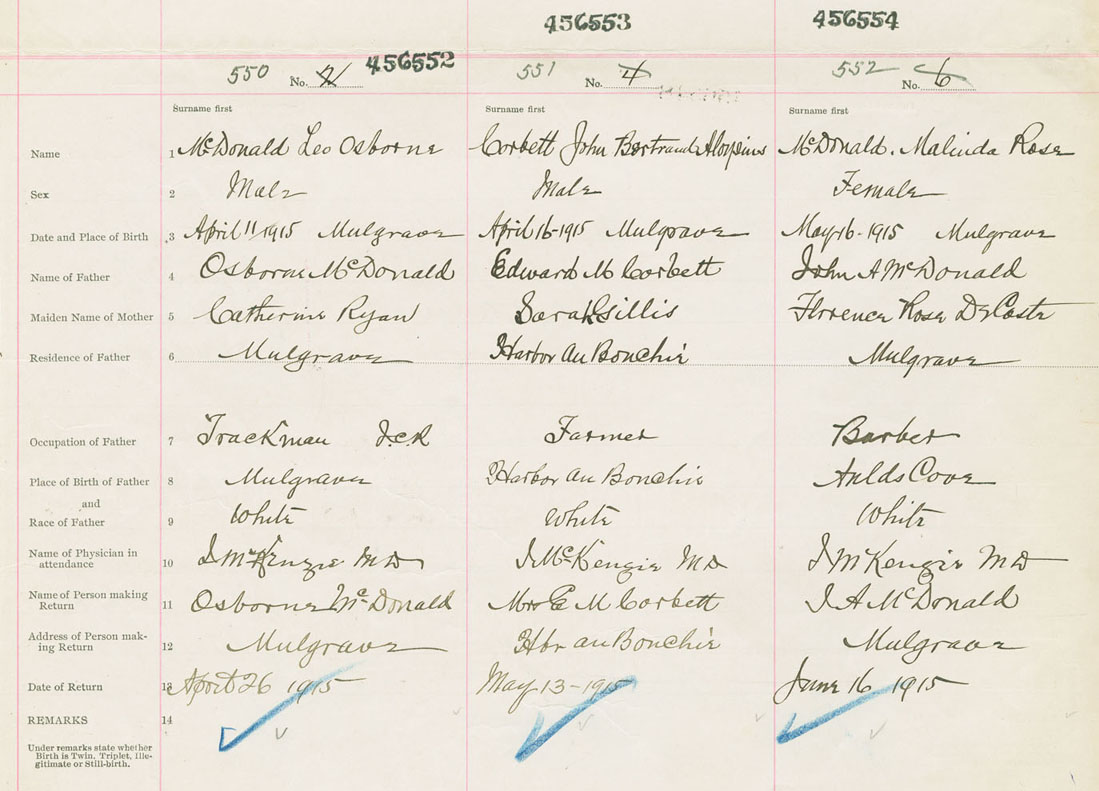 456553 456554
550 No. 2 456552 551 No. 4 552 No. 6
Surname first Surname first Surname first
Name 1 McDonald Leo Osborne Corbett John Bertrand Aloysius McDonald. Malinda Rose
Sex 2 Male Male Female
Date and Place of Birth 3 April 11 1915 Mulgrave April 16-1915 Mulgrave May 16-1915 Mulgrave
Name of Father 4 Osborne McDonald Edward M Corbett John A McDonald
Maiden Name of Mother 5 Catherine Ryan Sarah Gillis Florence Rose DeCoste
Residence of Father 6 Mulgrave Harbor Au Bouchie Mulgrave
Occupation of Father 7 Trackman I.C.R Farmer Barber
Place of Birth of Father 8 Mulgrave Harbor au Bouchie Aulds Cove
and
Race of Father 9 White White White
Name of Physician in
attendance 10 J McKenzie MD J McKenzie MD J McKenzie MD
Name of Person making
Return 11 Osborne McDonald Mrs E M Corbett J A McDonald
Address of Person mak-
ing Return 12 Mulgrave Hbr au Bouchie Mulgrave
Date of Return 13 April 26 1915 May-13-1915 June 16 1915
REMARKS 14
Under remarks state whether
Birth is Twin, Triplet, Ille-
gitimate or Still-birth.